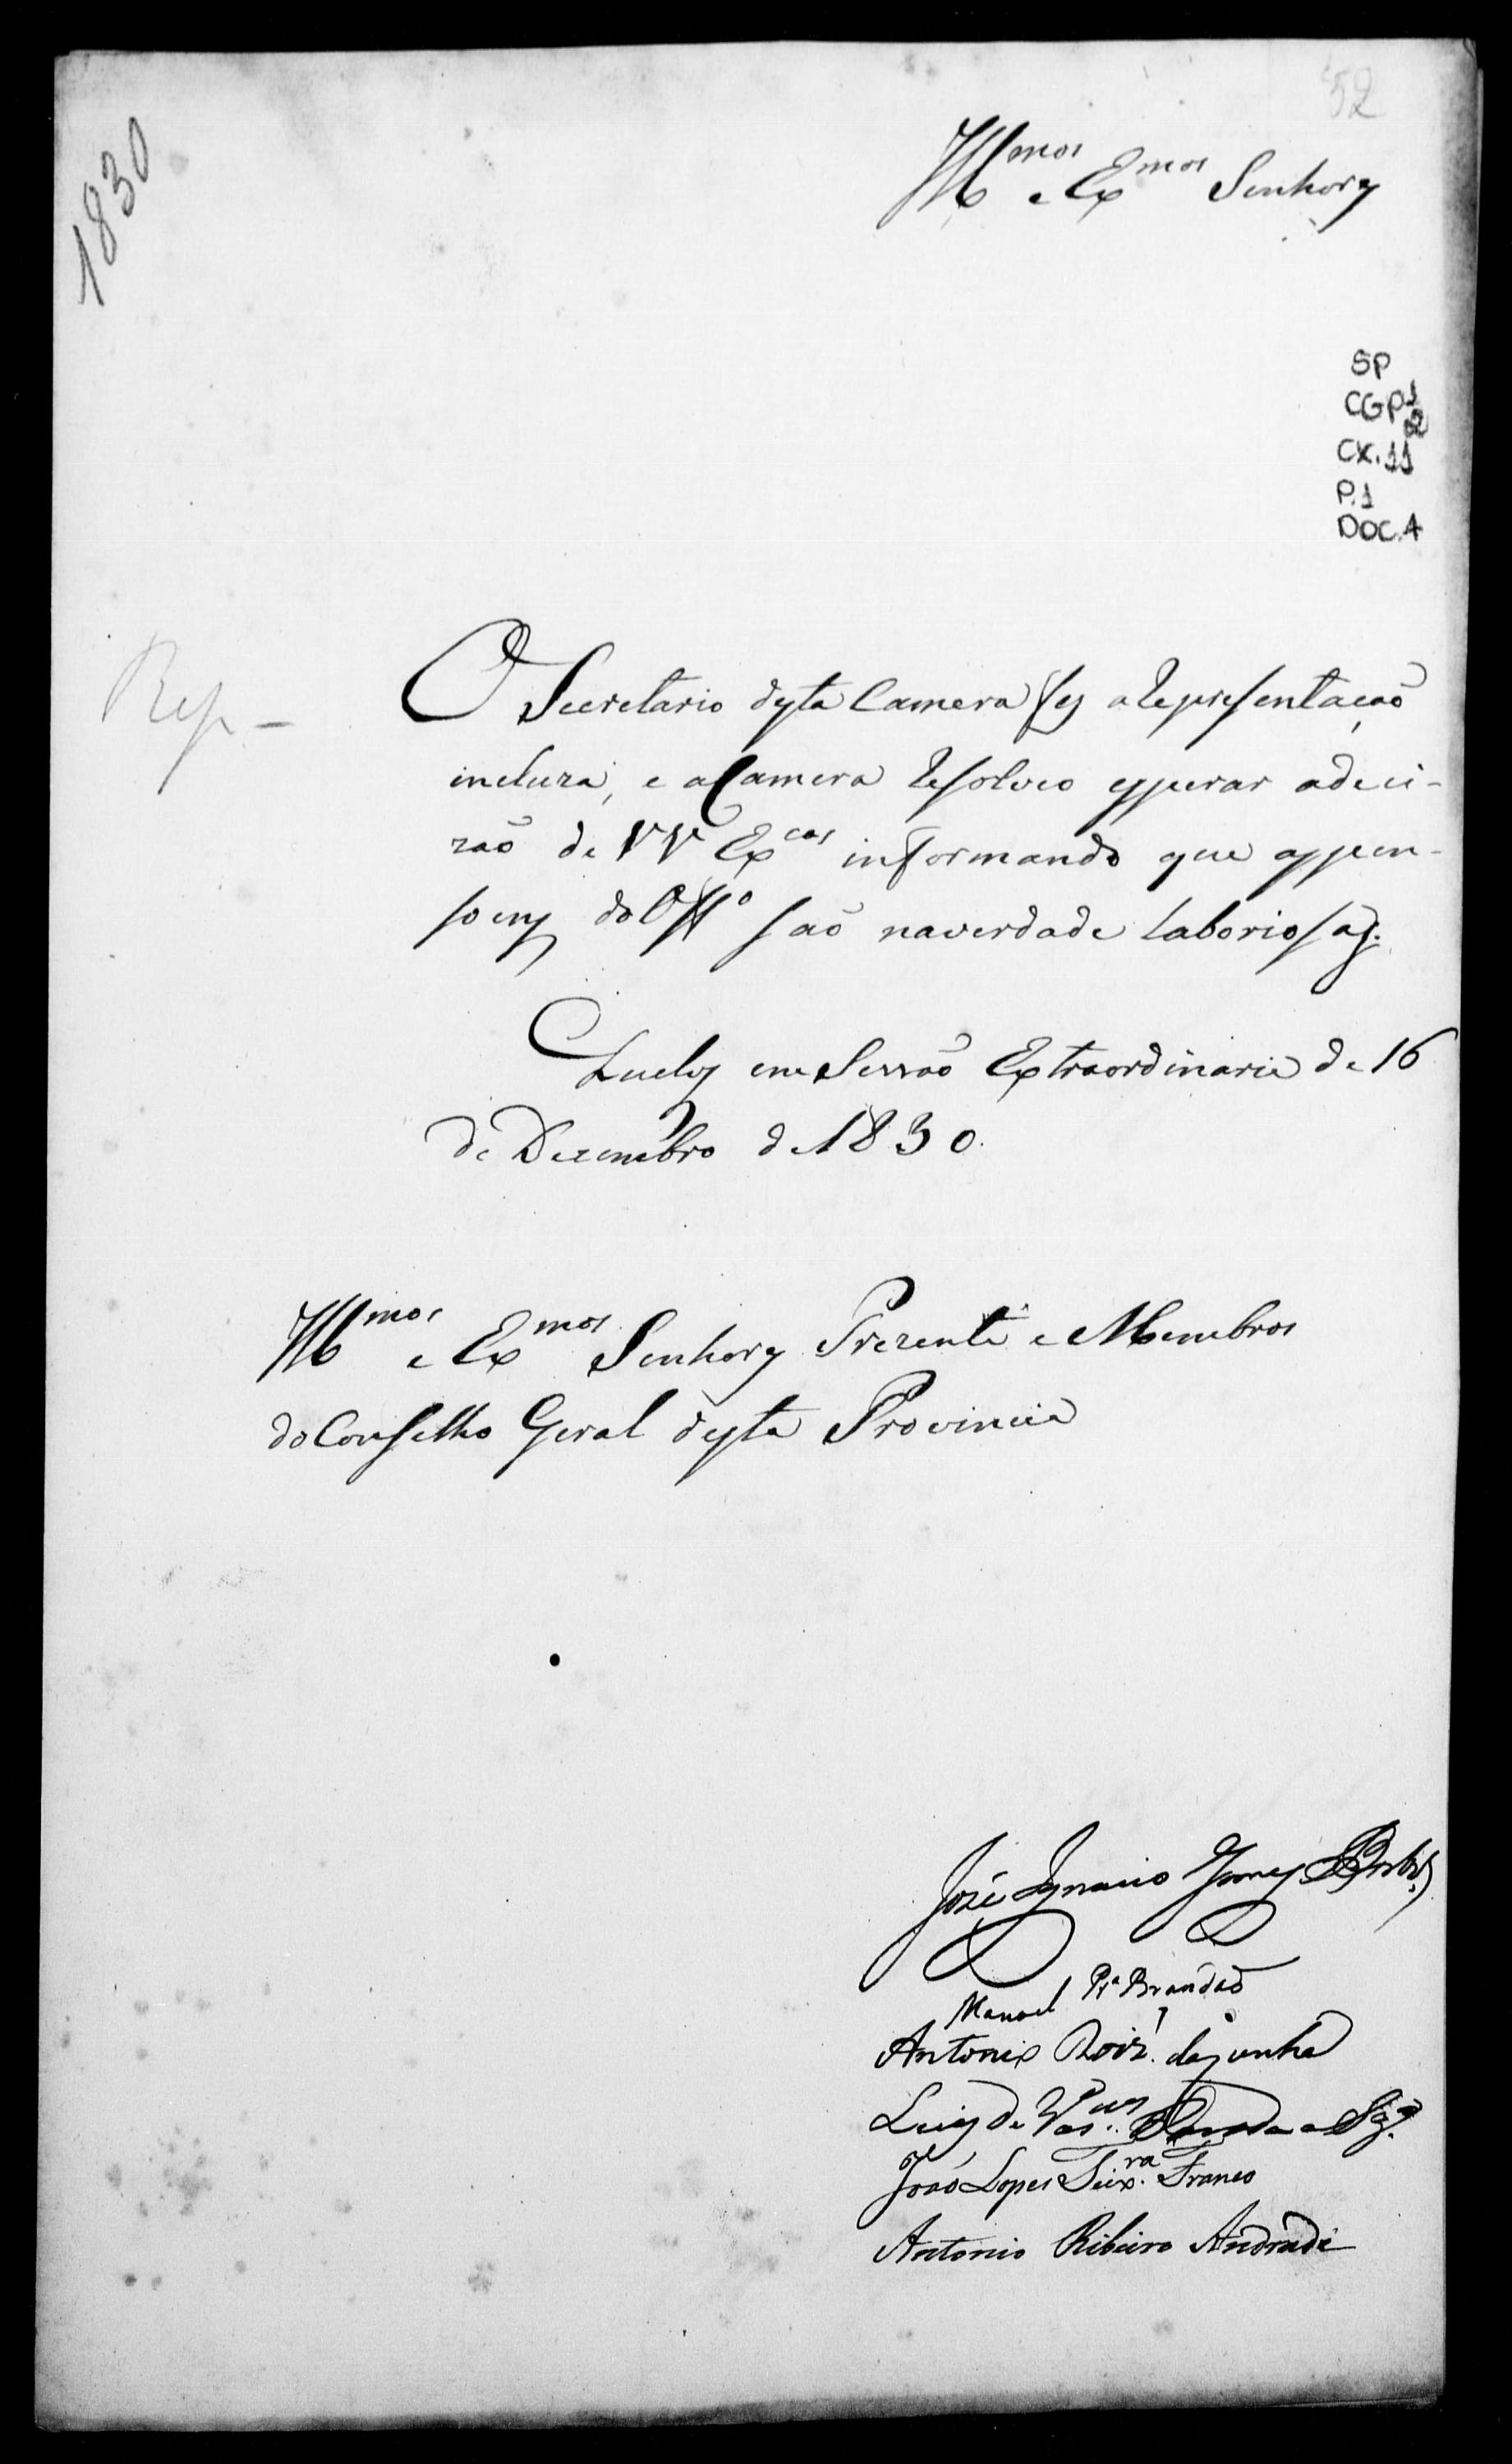 52
1830
Illmos e Exmos Senhores
SP
CGP1
CX.11
P.1
DOC.4
Rep -
O Secretario desta Camera fes a Representação
incluza, e a Camera resolveo esperar a deci-
zaõ de VV Excas informando que as pen-
soens do Offº saõ na verdade laboriosas.
Queluz em Sessaõ Extraordinaria de 16
de Dezembro de 1830.
Illmos e Exmos Senhores Prezidente e Membros
do Conselho Geral desta Provincia
José Ignacio Gomes Barbosa
Manoel Pra Brandaõ
Antonio Roiz. da Cunha
Luis de Vascos
Joaõ Lopes Teixra Franco
Antonio Ribeiro Andrade